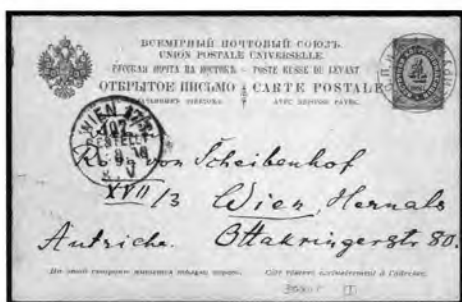 ВСЕМІРНЫЙ ПОЧТОВЫЙ СОЮЗЪ.
UNION POSTALE UNIVERSELLE.
РУССКАЯ ПОЧТА НА ВОСТОКѢ · POSTE RUSSE DU LEVANT
ОТКРЫТОЕ ПИСЬМО CARTE POSTALE
AVEC RÉPONSE PAYÉE.
WIEN
von Scheibenhof
XVII/3 Wien, Hernals
Autriche. Ottakringerstr 80.
На этой сторонѣ пишется только адресъ. Côté réservé exclusivement à l'adresse.